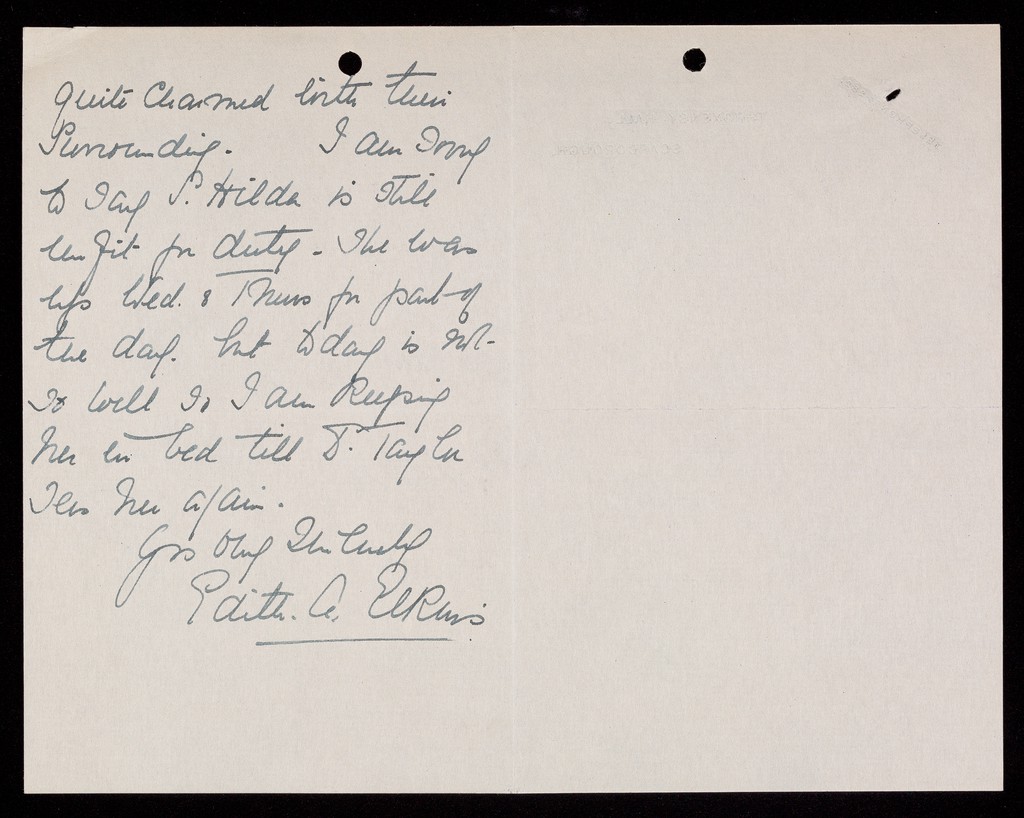 quite charmed with their
Surrounding. I am Sorry
to Say S. Hilda is still
unfit for duty. She was
up Wed. & Thurs for part of
the day. but today is not
So well So I am Keeping
her in bed till Dr. Taylor
Sees her again.
Yrs Very Sincerely
Edith. A. Elkins